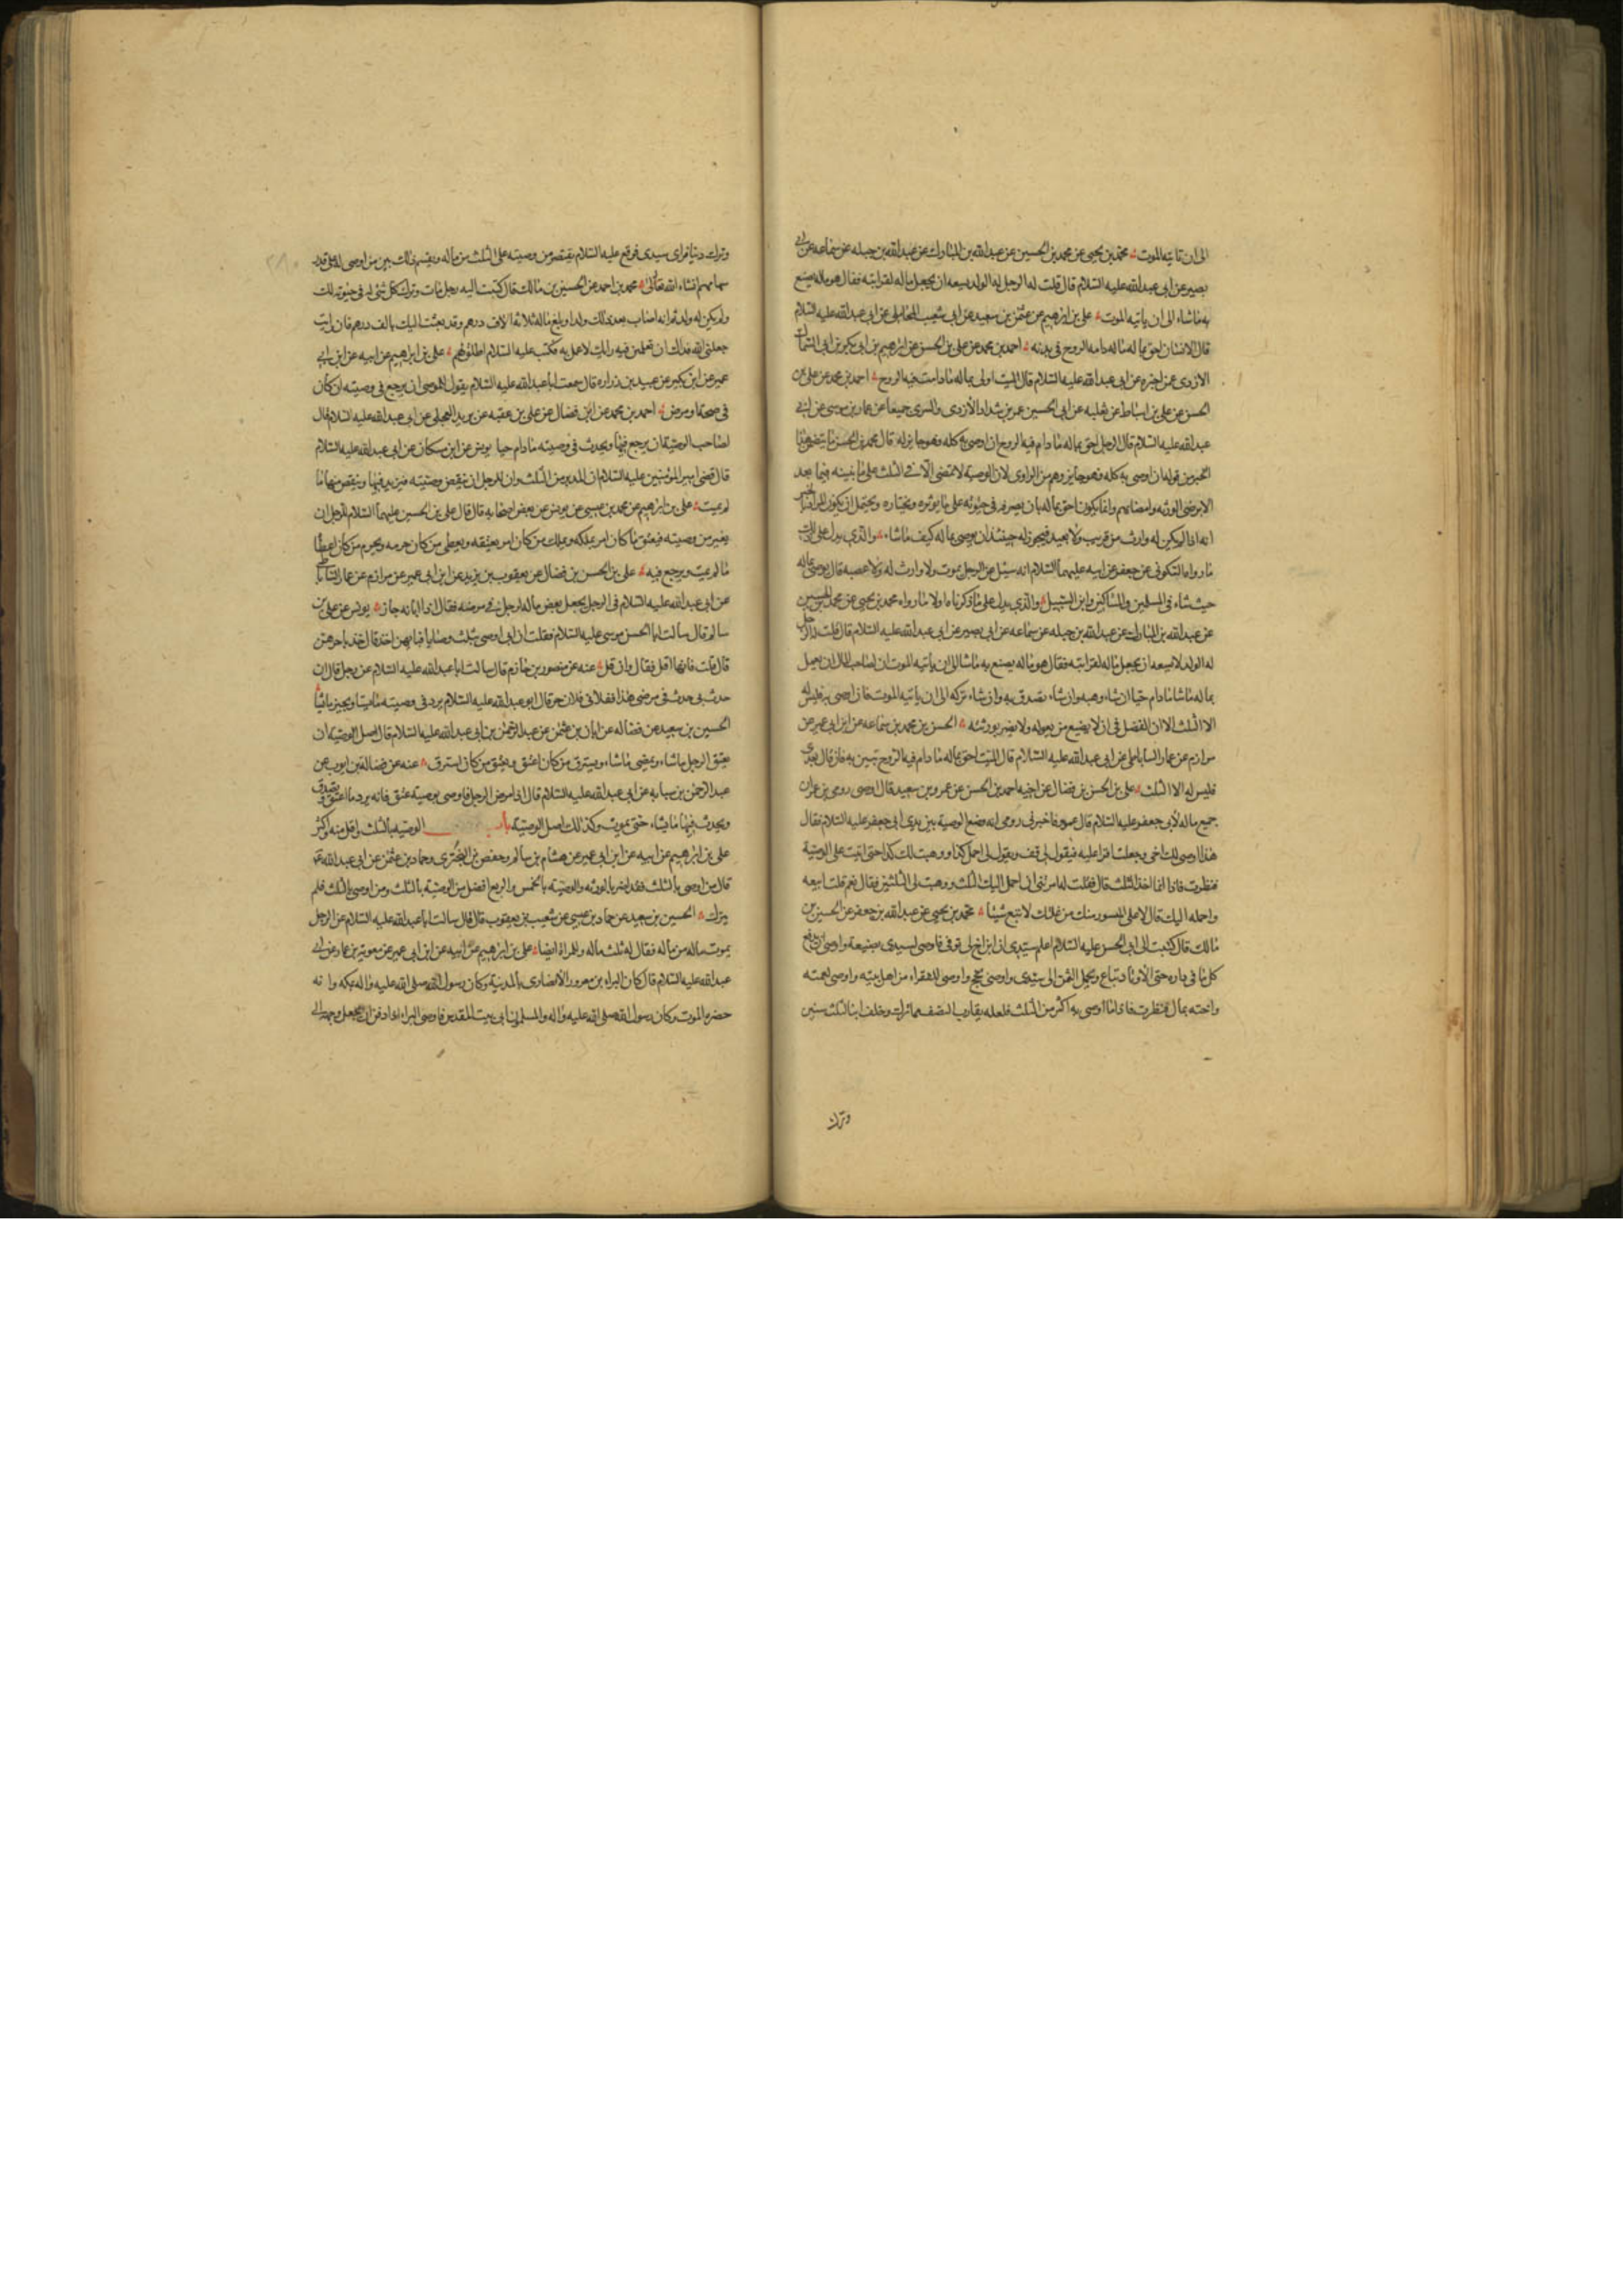 الى ان تاتيه الموت محمد بن يحيى عن محمد بن الحسين عن عبد الله بن المبارك عن عبد الله بن جبله عن سماعه عن ابى
بصير عن ابى عبد الله عليه السلام قال قلت له الرجل له الولد يسعه ان يجعل ماله لقرابته فقال هو ماله يصنع
به ما شاء الى ان ياتيه الموت علي بن ابرهيم عن عثمن بن سعيد عن ابى شعيب المحاملى عن ابى عبد الله عليه السلام
قال الانسان احق بماله ما دامه الروح فى بدنه احمد بن محمد عن على بن الحسن عن ابرهيم بن ابى بكر بن ابى السمال
الازدى عمن اخبره عن ابى عبد الله عليه السلام قال الميت اولى بماله ما دامت فيه الروح احمد بن محمد عن على بن
الحسن عن على بن اسباط عن ثعلبه عن ابى الحسين عمر بن شداد الازدى والسرى جميعا عن عمار بن موسى عن ابى
عبد الله عليه السلام قال الرجل احق بماله ما دام فيه الروح ان اوصى به كله فهو جايز له قال محمد بن الحسن ما يتضمن هذا
الخبر من قوله ان اوصى به كله فهو جايز وهم من الراوى لان الوصية لا تمضى الا فى الثلث على ما نبينه فيما بعد
الا برضى الورثه وامضائهم وانما يكون احق بماله بان يصرفه فى حيوته على ما يوثره ويختاره ويحتمل ان يكون المراد
انه اذا لم يكن له وارث من قريب ولا بعيد فيجوز له حينئذ ان يوصى بماله كيف ما شاء والذى يدل على ذلك
ما رواه السكونى عن جعفر عن ابيه عليهما السلام انه سئل عن الرجل يموت ولا وارث له ولا عصبه قال يوصى بماله
حيث شاء فى المسلمين والمساكين وابن السبيل والذى يدل على ما ذكرناه اولا ما رواه محمد بن يحيى عن محمد بن الحسين
عن عبد الله بن المبارك عن عبد الله بن جبله عن سماعه عن ابى بصير عن ابى عبد الله عليه السلام قال قلت له الرجل
له الولد لا يسعه ان يجعل ماله لقرابته فقال هو ماله يصنع به ما شا الى ان ياتيه الموت ان لصاحب المال ان يعمل
بماله ما شا ما دام حيا ان شاء وهبه وان شاء تصدق به وان شاء تركه الى ان ياتيه الموت فان اوصى به فليس له
الا الثلث الا ان الفضل فى ان لا يضيع من يعوله ولا يضر بورثته الحسن بن محمد بن سماعه عن ابن ابى عمير عن
مرازم عن عمار الساباطى عن ابى عبد الله عليه السلام قال الميت احق بماله ما دام فيه الروح يبين به فان قال بعدى
فليس له الا الثلث على بن الحسن بن فضال عن اخيه احمد بن الحسن عن عمرو بن سعيد قال اوصى رومى بن عمران
جميع ماله لابى جعفر عليه السلام قال عمرو فاخبرنى رومى انه وضع الوصية بين يدى ابى جعفر عليه السلام فقال
هذا اوصى لك اخى وجعلت اقرا عليه فيقول لى قف ويقول لى احمل كذا ووهبت لك كذا حتى اتيت على الوصية
فنظرت فاذا انما اخذ الثلث قال فقلت له امرتنى ان احمل اليك الثلث ووهبت لى الثلثين فقال نعم قلت ابيعه
واحمله اليك قال لا على الميسور منك من غلتك لا تبع شيئا محمد بن يحيى عن عبد الله بن جعفر عن الحسين بن
مالك قال كتبت الى ابى الحسن عليه السلام اعلم سيدى ان ابن اخ لى توفى فاوصى لسيدى بضيعة واوصى ان يدفع
كل ما فى داره حتى الاوتاد تباع ويحمل الثمن الى سيدى واوصى بحج واوصى للفقراء من اهل بيته واوصى لعمته
واخته بمال فنظرت فاذا ما اوصى به اكثر من الثلث فلعله يقارب النصف مما ترك وخلف ابنا لثلث سنين
وترك
وترك دينا فراى سيدى فوقع عليه السلام يقتصر من وصيته على الثلث من ماله ويقسم ذلك بين من اوصى له على قدر
سهامهم انشاء الله تعالى محمد بن احمد عن الحسين بن مالك قال كتبت اليه رجل مات وترك كل شئ له فى حيوته لك
ولم يكن له ولد ثم انه اصاب بعد ذلك ولدا ومبلغ ماله ثلاثة الاف درهم وقد بعثت اليك بالف درهم فان رايت
جعلنى الله فداك ان تعلمنى فيه رايك لاعمل به فكتب عليه السلام اطلق لهم على بن ابرهيم عن ابيه عن ابن ابى
عمير عن ابن بكير عن عبيد بن زراره قال سمعت ابا عبد الله عليه السلام يقول للموصى ان يرجع فى وصيته ان كان
فى صحة او مرض احمد بن محمد عن ابن فضال عن على بن عقبه عن بريد العجلى عن ابى عبد الله عليه السلام قال
لصاحب الوصية ان يرجع فيها ويحدث فى وصيته ما دام حيا يونس عن ابن مسكان عن ابى عبد الله عليه السلام
قال قضى امير المؤمنين عليه السلام ان المدبر من الثلث وان للرجل ان ينقض وصيته فيزيد فيها وينقص منها ما
لم يمت على بن ابرهيم عن محمد بن عيسى عن يونس عن بعض اصحابه قال قال على بن الحسين عليهما السلام للرجل ان
يغير من وصيته فيعتق ما كان امر بملكه ويملك من كان امر بعتقه ويعطى من كان حرمه ويحرم من كان اعطا
ما لم يمت ويرجع فيه على بن الحسن بن فضال عن يعقوب بن يزيد عن ابن ابى عمير عن مرازم عن عمار الساباطى
عن ابى عبد الله عليه السلام فى الرجل يجعل بعض ماله لرجل فى مرضه فقال اذا ابانه جاز يونس عن على بن
سالم قال سالت ابا الحسن موسى عليه السلام فقلت ان ابى اوصى بثلث وصايا فبايهن اخذ قال خذ باخرهن
قال قلت فانها اقل فقال وان قل عنه عن منصور بن حازم قال سالت ابا عبد الله عليه السلام عن رجل قال ان
حدث بى حدث فى مرضى هذا فغلامى فلان حر قال ابو عبد الله عليه السلام يرد فى وصيته ما يشا ويجيز ما يشا
الحسين بن سعيد عن فضاله عن ابان بن عثمن عن عبد الرحمن بن ابى عبد الله عليه السلام قال اصل الوصية ان
يعتق الرجل ما شاء ويمضى ما شاء ويسترق من كان اعتق ويعتق من كان استرق عنه عن فضالة بن ايوب عن
عبد الرحمن بن سيابه عن ابى عبد الله عليه السلام قال اذا مرض الرجل فاوصى بوصية عتق فانه يرد ما اعتق وتصدق
ويحدث فيها ما يشاء حتى يموت وكذلك اصل الوصية باب الوصية بالثلث واقل منه واكثر
على بن ابرهيم عن ابيه عن ابن ابى عمير عن هشام بن سالم وحفص بن البخترى وحماد بن عثمن عن ابى عبد الله
قال من اوصى بالثلث فقد اضر بالورثه والوصية بالخمس والربع افضل من الوصية بالثلث ومن اوصى بالثلث فلم
يترك الحسين بن سعيد عن حماد بن عيسى عن شعيب بن يعقوب قال قال سالت ابا عبد الله عليه السلام عن الرجل
يموت ماله من ماله فقال له ثلث ماله وللمراة ايضا على بن ابرهيم عن ابيه عن ابن ابى عمير عن معوية بن عمار عن ابى
عبد الله عليه السلام قال كان البراء بن معرور الانصارى بالمدينة وكان رسول الله صلى الله عليه واله بمكه وانه
حضره الموت وكان رسول الله صلى الله عليه واله والمسلمون الى بيت المقدس فاوصى البراء اذا دفن ان يجعل وجهه الى